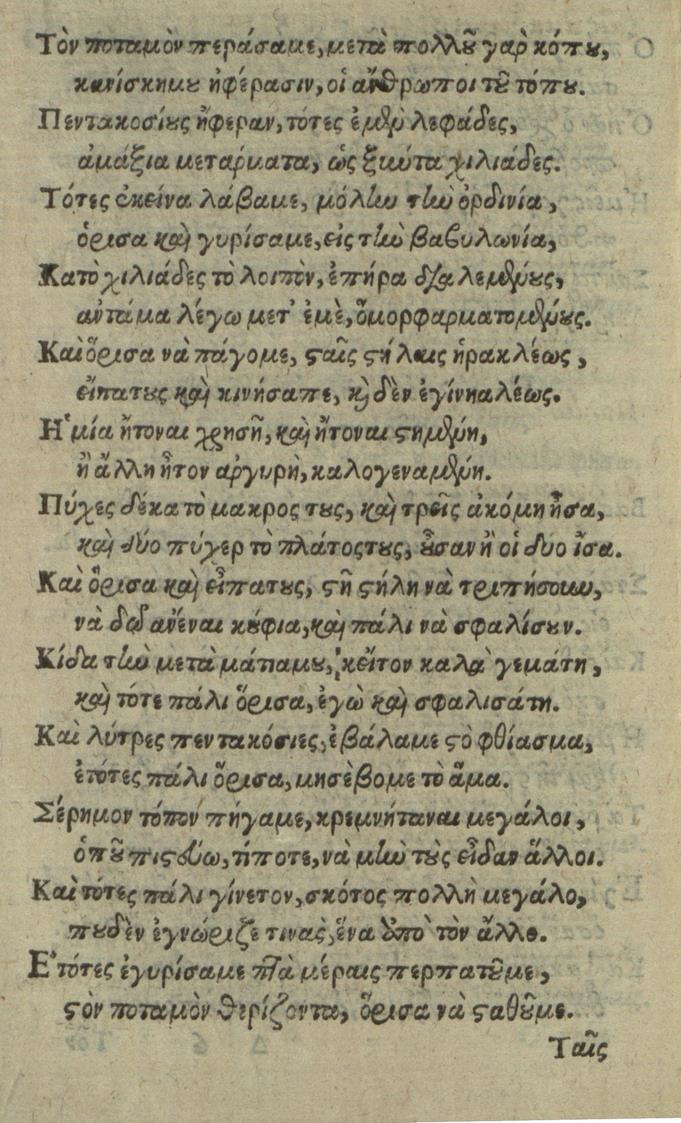 Τὸν ποταμὸν περάσαμε, μετὰ πολλοῦ γαρ κόπου,
κανίσκημου ἠφέρασιν, οἱ ἄνθρωποι τοῦ τόπου.
Πεντακοσίους ἤφεραν, τότες ἐμὲν λεφάδες,
ἁμάξια μεταρματα, ὡς ξκώτα χιλιάδες.
Τότες ἐκείνα λάβαμε, μόλην τὴν ὀρδινία,
ὁρισα καὶ γυρίσαμε, εἰς τὴν βαβυλωνία,
Κατὸ χιλιάδες τὸ λοιπὸν, ἐπήρα διαλεμένους,
αὐτάμα λέγω μετ' ἐμὲ, ὅμορφαρματομένους.
Καὶ ὅρισα νὰ πάγομε, σταῖς στήλαις ἡρακλέως,
εἴπατους καὶ κινήσαπε, κὶ δὲν ἐγίνηαλέως.
Ἡ μία ἤτοναι χρησῆ, καὶ ἤτοναι στημένη,
ἡ ἄλλη ἦτον αργυρὴ, καλογεναμένη.
Πύχες δέκα τὸ μακρος τους, καὶ τρεῖς ἀκόμη ἦσα,
καὶ δύο πύχερ τὸ πλάτοςτους, οὖσαν ἢ οἱ δυο ἴσα.
Καὶ ὅρισα καὶ εἶπατους, στῆ στήλη νὰ τριπήσουν,
νὰ δοῦ ἀνεναι κούφια, καὶ πάλι νὰ σφαλίσουν.
Κίδα τὴν μετὰ μάτιαμου, κεῖτον καλὰ γεμάτη,
καὶ τότε πάλι ὅρισα, ἐγὼ καὶ σφαλισάτη.
Καὶ λύτρες πεντακόσιες, ἐβάλαμε στὸ φθίασμα,
ἐτότες πάλι ὅρισα, μησέβομε τὸ ἅμα.
Σέρημον τόπον πήγαμε, κρεμνήταναι μεγάλοι,
ὁποῦ πιστεύω, τίποτε, νὰ μὴν τοὺς εἶδαν ἄλλοι.
Καὶ τότες πάλι γίνετον, σκότος πολλὴ μεγάλο,
πουδὲν ἐγνώριζε τινας, ἕνα ἀπὸ τὸν ἄλλο.
Ἐτότες ἐγυρίσαμε πτὰ μέραις περπατοῦμε,
στὸν ποταμὸν θερίζοντα, ὅρισα νὰ σταθοῦμε.
Ταῖς